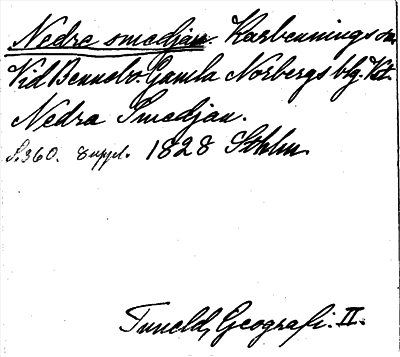 Nedre smedjan. Karbennings sn.
Vid Bennebo. Gamla Norbergs blg. Vstm.
Nedra Smedjan.
S. 360. suppl. 1828 Sthlm
Tuneld, Geografi. II.